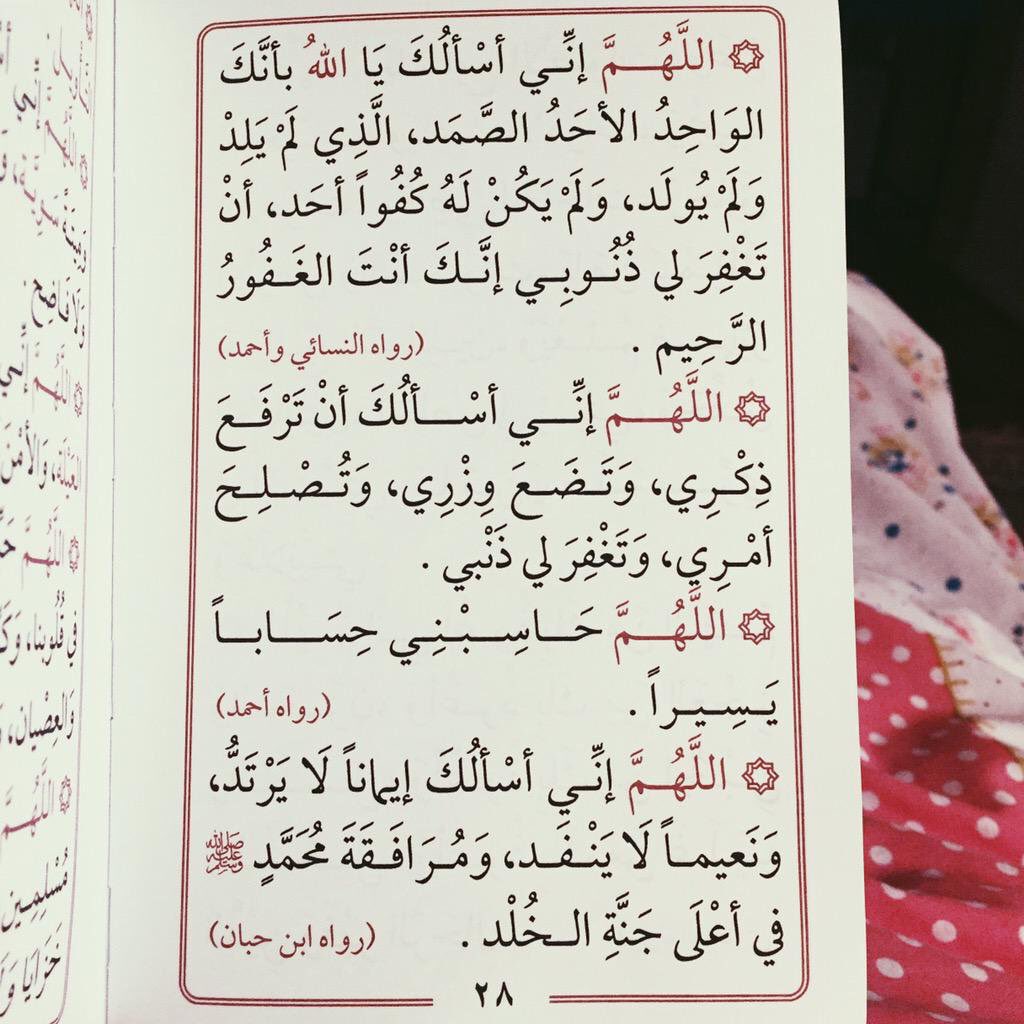 اللَّهُـمَّ إنِّـي أسْألُكَ يَا اللهُ بأنَّكَ
الوَاحِدُ الأحَدُ الصَّمَد، الَّذِي لَمْ يَلِدْ
وَلَمْ يُولَد، وَلَمْ يَكُنْ لَهُ كُفُواً أحَد، أنْ
تَغْفِرَ لي ذُنُوبِي إنَّكَ أنْتَ الغَفُورُ
الرَّحِيم . (رواه النسائي وأحمد)
اللَّهُمَّ إنِّي أسْألُكَ أنْ تَرْفَعَ
ذِكْرِي، وَتَضَعَ وِزْرِي، وَتُصْلِحَ
أمْرِي، وَتَغْفِرَ لي ذَنْبي .
اللَّهُمَّ حَاسِبْنِي حِسَاباً
يَسِيراً . (رواه أحمد)
اللَّهُمَّ إنِّي أسْألُكَ إيماناً لَا يَرْتَدُّ،
وَنَعيماً لَا يَنْفَد، وَمُرَافَقَةَ مُحَمَّدٍ ﷺ
في أعْلَى جَنَّةِ الخُلْد . (رواه ابن حبان)
٢٨